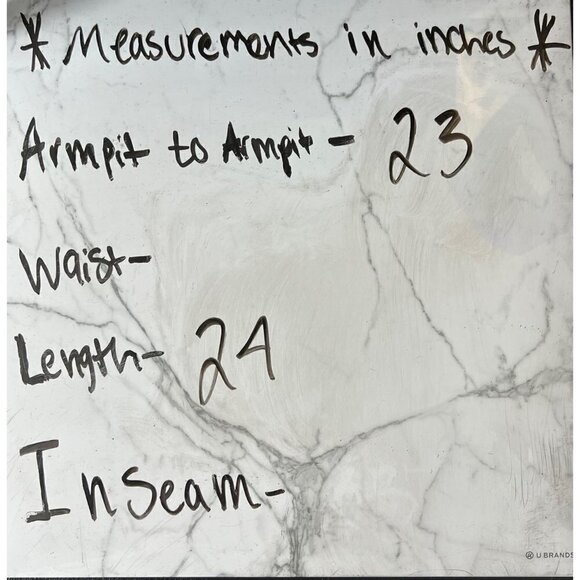 * Measurements in inches *
Armpit to Armpit - 23
Waist-
Length- 24
Inseam-
U BRANDS